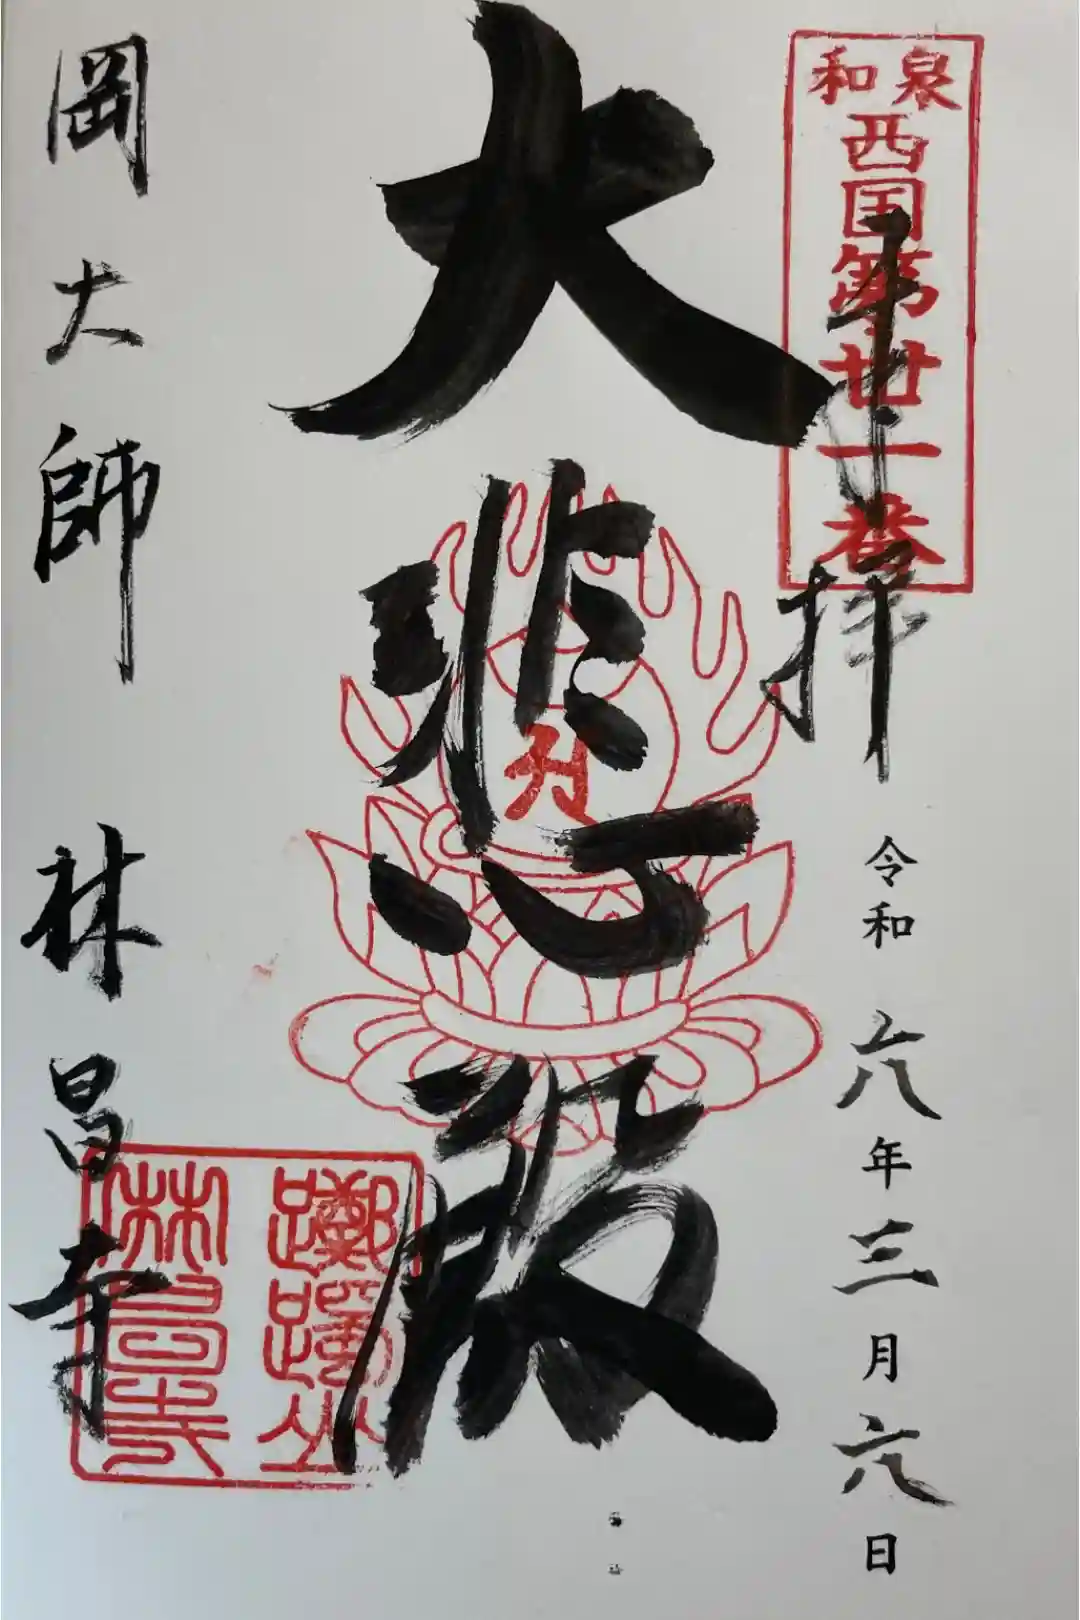 和泉
西国第丗一番
奉拝
令和六年三月六日
大悲殿
岡大師
林昌寺
躑躅山
林昌寺